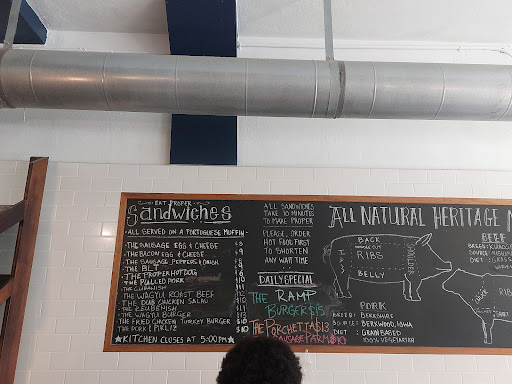 EAT PROPER
Sandwiches
ALL SERVED ON A PORTUGUESE MUFFIN
THE SAUSAGE EGG & CHEESE $8
THE BACON EGG & CHEESE $9
THE SAUSAGE, PEPPERS & ONION
THE BLT
THE PROPER HOT DOG
THE PULLED PORK
THE CUBANISH
THE WAGYU ROAST BEEF
THE DUCK CHICKEN SALAD
THE ZEUBENISH
THE WAGYU BURGER
THE FRIED CHICKEN TURKEY BURGER $10
THE PORK & PIKLIZ $10
★KITCHEN CLOSES AT 5:00PM★
ALL SANDWICHES
TAKE 10 MINUTES
TO MAKE PROPER
PLEASE, ORDER
HOT FOOD FIRST
TO SHORTEN
ANY WAIT TIME
DAILY SPECIAL
THE RAMP
BURGER $15
THE PORCHETTA $13
SAUSAGE PARM $10
ALL NATURAL HERITAGE
BACK
RIBS
BELLY
SHOULDER
PORK
BREED: BERKSHIRE
SOURCE: BERKWOOD, IOWA
DIET: GRAIN BASED
100% VEGETARIAN
BEEF